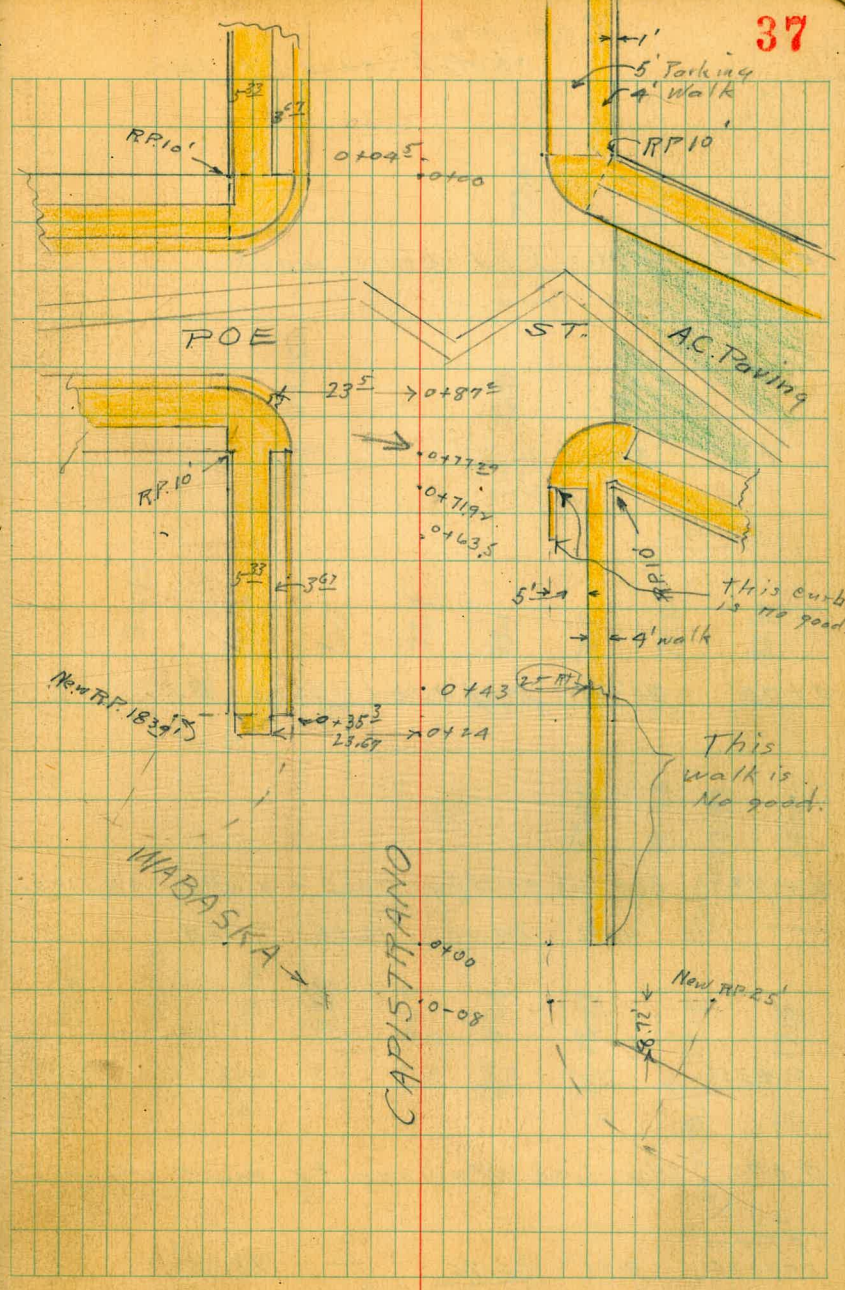 37
1'
5' Parking
4' Walk
5 33
3 67
R.P. 10'
RP 10'
0+04 5
0+00
POE ST.
A.C. Paving
23 5
0+87
0+77 29
0+71.92
0+63.5
R.P. 10'
R.P. 10'
5 33
3 67
5'
This curb
is no good
4' walk
New R.P. 18
0+43
0+35 3
23.67
0+24
This
walk is
No good.
WABASKA
CAPISTRANO
0+00
New R.P. 25'
0-08
8.72'